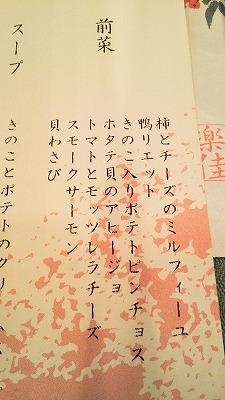 前菜
柿とチーズのミルフィーユ
鴨リエット
きのこ入りポテトピンチョス
ホタテ貝のアヒージョ
トマトとモッツレラチーズ
スモークサーモン
貝わさび
スープ
きのことポテトのクリ